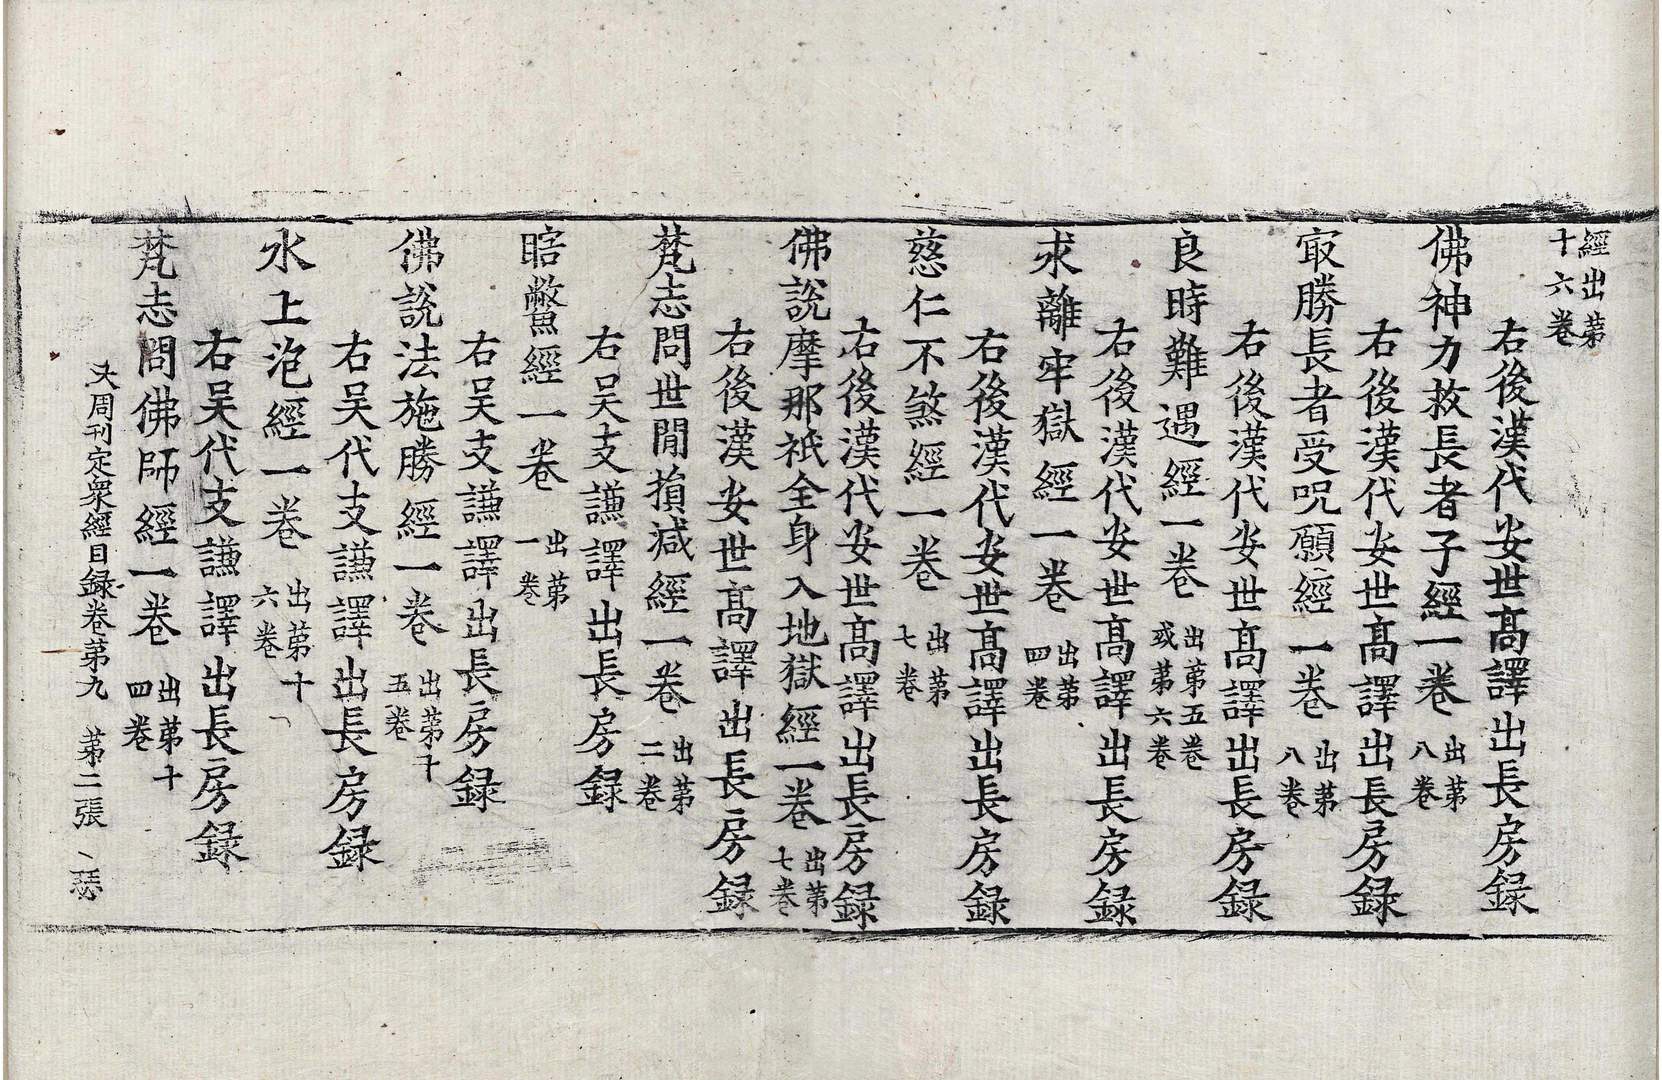 經出苐
十六卷
右後漢代安世髙譯出長房録
佛神力救長者子經一卷出苐
八卷
右後漢代安世髙譯出長房録
㝡勝長者受呪願經一卷出苐
八卷
右後漢代安世髙譯出長房録
良時難遇經一卷出苐五卷
或苐六卷
右後漢代安世髙譯出長房録
求離牢獄經一卷出苐
四卷
右後漢代安世髙譯出長房録
慈仁不煞經一卷出苐
七卷
右後漢代安世髙譯出長房録
佛說摩那祇全身入地獄經一卷出苐
七卷
右後漢安世髙譯出長房録
梵志問世閒損減經一卷出苐
二卷
右吴支謙譯出長房録
瞎鱉經一卷出苐
一卷
右吴支謙譯出長房録
佛說法施勝經一卷出苐十
五卷
右吴代支謙譯出長房録
水上泡經一卷出苐十
六卷
右吴代支謙譯出長房録
梵志問佛師經一卷出苐十
四卷
大周刊定衆經目録卷苐九 苐二張 瑟